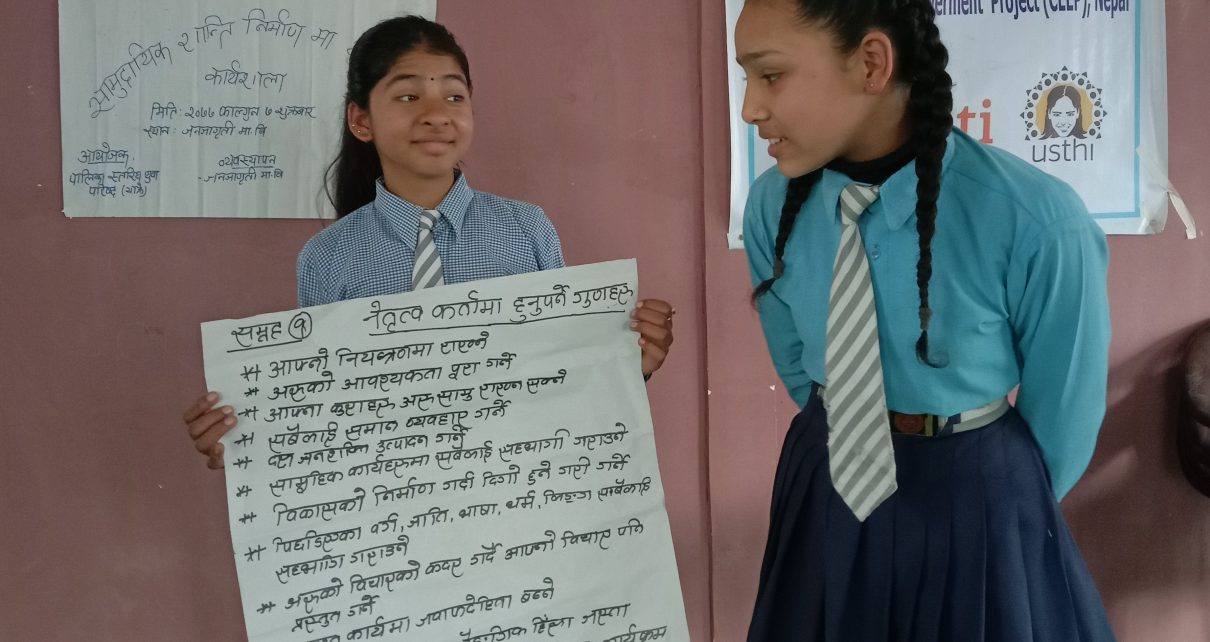 सामुदायिक शान्ति निर्माण मा
कार्यशाला
मिति: २०७७ फाल्गुन ७ शुक्रबार
स्थान: जनजागृती मा.वि
आयोजक
पालिका स्तरिय युवा
परिषद
व्यवस्थापन
- जनजागृती मा.वि
erment Project (CEEP), Nepal
ti
usthi
समूह १
नेतृत्व कर्तामा हुनुपर्ने गुणहरु
* आफ्नो नियन्त्रणमा राख्ने
* अरुको आवश्यकता पूरा गर्ने
* आफ्ना कुराहरु अरु सामु राख्न सक्ने
* सबैलाई समान व्यवहार गर्ने
* दक्ष जनशक्ति उत्पादन गर्ने
* सामुहिक कार्यहरुमा सबैलाई सहभागी गराउने
* विकासको निर्माण गर्दा दिगो हुने गरी गर्ने
* पिछडिएका वर्ग, जाति, भाषा, धर्म, लिङ्ग सबैलाई
सहभागि गराउने
* अरुको विचारको कदर गर्दै आफ्नो विचार पनि
प्रस्तुत गर्ने
कार्यमा जवाफदेहिता बढ्ने
हिंसा जस्ता
कार्यक्रम